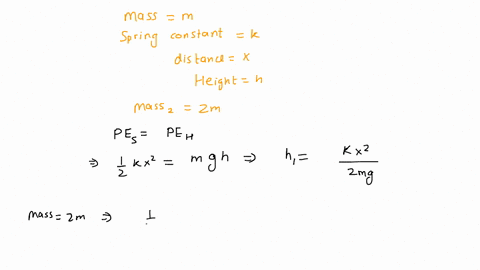 mass = m
Spring constant = k
distance = x
Height = h
mass₂ = 2m
PE_S = PE_H
⇒ 1/2 kx² = mgh ⇒ h₁ = Kx²/2mg
mass = 2m ⇒ 1